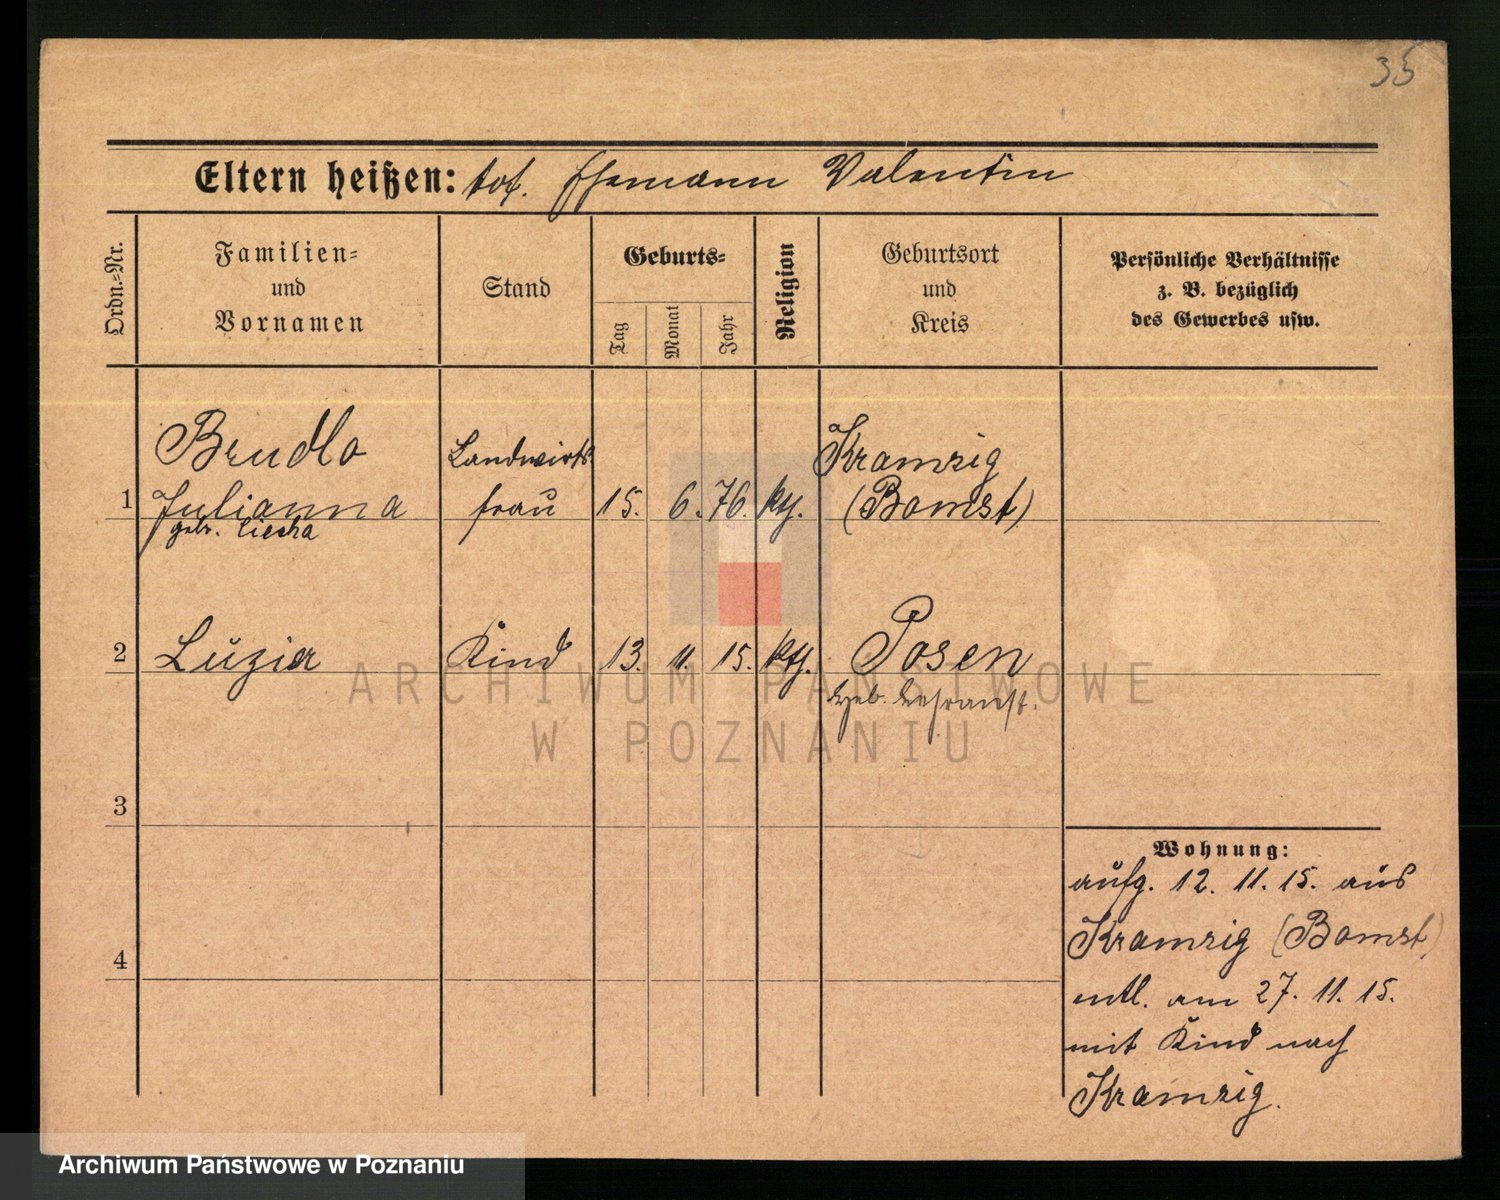 35
Eltern heißen: tot. Ehemann Valentin
Ordn.-Nr.
Familien-
und
Vornamen
Stand
Geburts-
Tag
Monat
Jahr
Religion
Geburtsort
und
Kreis
Persönliche Verhältnisse
z. B. bezüglich
des Gewerbes usw.
Brudlo
Landwirts-
Kramzig
1 Julianna frau 15. 6. 76. kth. (Bomst)
geb. Ciesla
2 Luzia Kind 13. 11. 15. kth. Posen
Heb. Lehranst.
3
4
Wohnung:
aufg. 12. 11. 15. aus
Kramzig (Bomst)
entl. am 27. 11. 15.
mit Kind nach
Kramzig.
ARCHIWUM PAŃSTWOWE
W POZNANIU
Archiwum Państwowe w Poznaniu